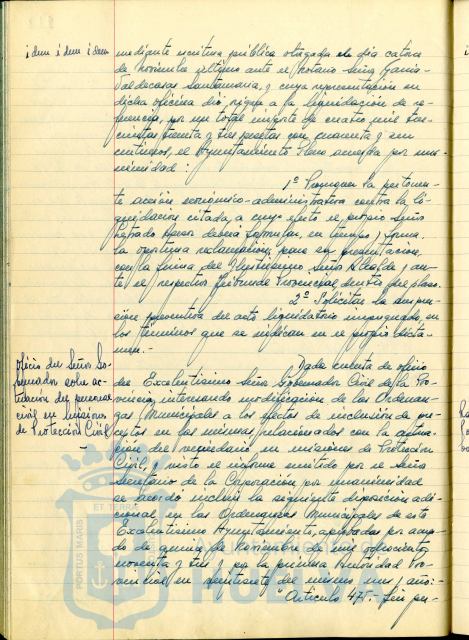 idem idem idem
mediante escritura pública otorgada el día catorce
de Noviembre último ante el Notario Señor
Santamaría, y cuya representación en
dicha oficina dió origen a la liquidación de re-
ferencia, por un total importe de cuatro mil
pesetas con cuarenta y un
céntimos, el Ayuntamiento Pleno acuerda por una-
nimidad:
1º Promuevan la pertinen-
te acción económico-administrativa contra la li-
quidación citada, a cuyo efecto el propio Señor
Letrado Asesor deberá formular, en tiempo y forma,
la oportuna reclamación, para su presentación,
con la firma del Ilustrísimo Señor Alcalde, an-
te el respectivo Tribunal Provincial dentro del plazo.
2º Solicitar la suspen-
sión preventiva del acto liquidatorio impugnado, en
los términos que se indican en el propio dicta-
men.-
Oficio del Señor Go-
bernador sobre ac-
tuación del personal
civil en misiones
de Protección Civil.
Dada cuenta de oficio
del Excelentísimo Señor Gobernador Civil de la Pro-
vincia, interesando modificación de las Ordenan-
zas Municipales a los efectos de inclusión de pre-
ceptos en las mismas relacionados con la actua-
ción del vecindario en misiones de Protección
Civil, y visto el informe emitido por el Señor
Secretario de la Corporación por unanimidad
se acordó incluir la siguiente disposición adi-
cional en las Ordenanzas Municipales de este
Excelentísimo Ayuntamiento, aprobadas por acuer-
do de quince de Noviembre de mil ochocientos
noventa y seis y por la primera Autoridad Pro-
vincial en diecisiete del mismo mes y año:
"Artículo 475.- Sin per-
PORTUS MARIS
ET TERRE
Ayuntamiento de
HUELVA